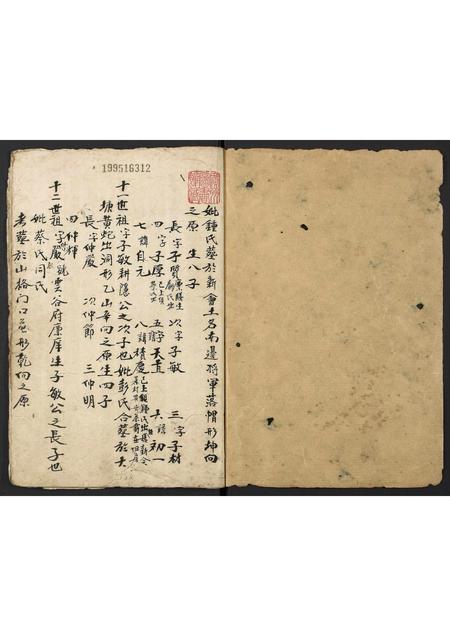 199516312
妣鍾氏葬於新會土名南邊將軍落帽形坤向
之原 生八子
長字子賢 次字子敏 三字子材
四字子原 五字天直 六諱初一
七諱自元 八諱積慶
十一世祖字子敏耕隱公之次子也妣彭氏合葬於大
塘黃蛇出洞形乙山辛向之原生四子
長字仲嚴 次仲節 三仲明
四仲輝
十二世祖字嚴號雲谷府原庠生子敏公之長子也
妣蔡氏同氏
考葬於山格門口 形乾向之原